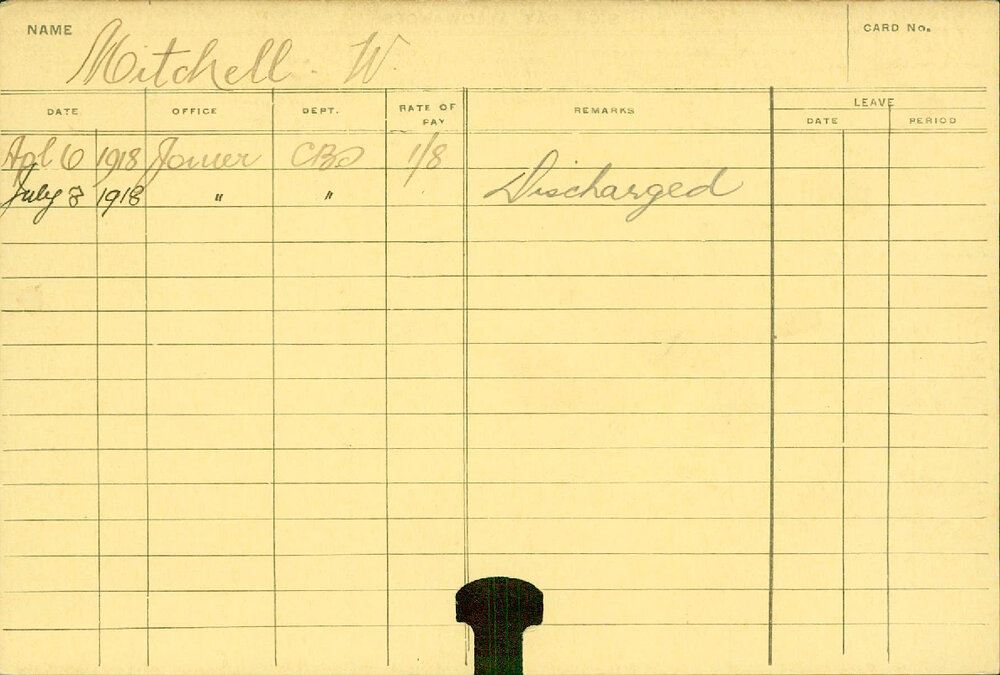 NAME Mitchell . W. CARD No.
DATE OFFICE DEPT. RATE OF PAY REMARKS LEAVE
DATE PERIOD
Apl 6 1918 Joiner CBD 1/8
July 8 1918 " " Discharged